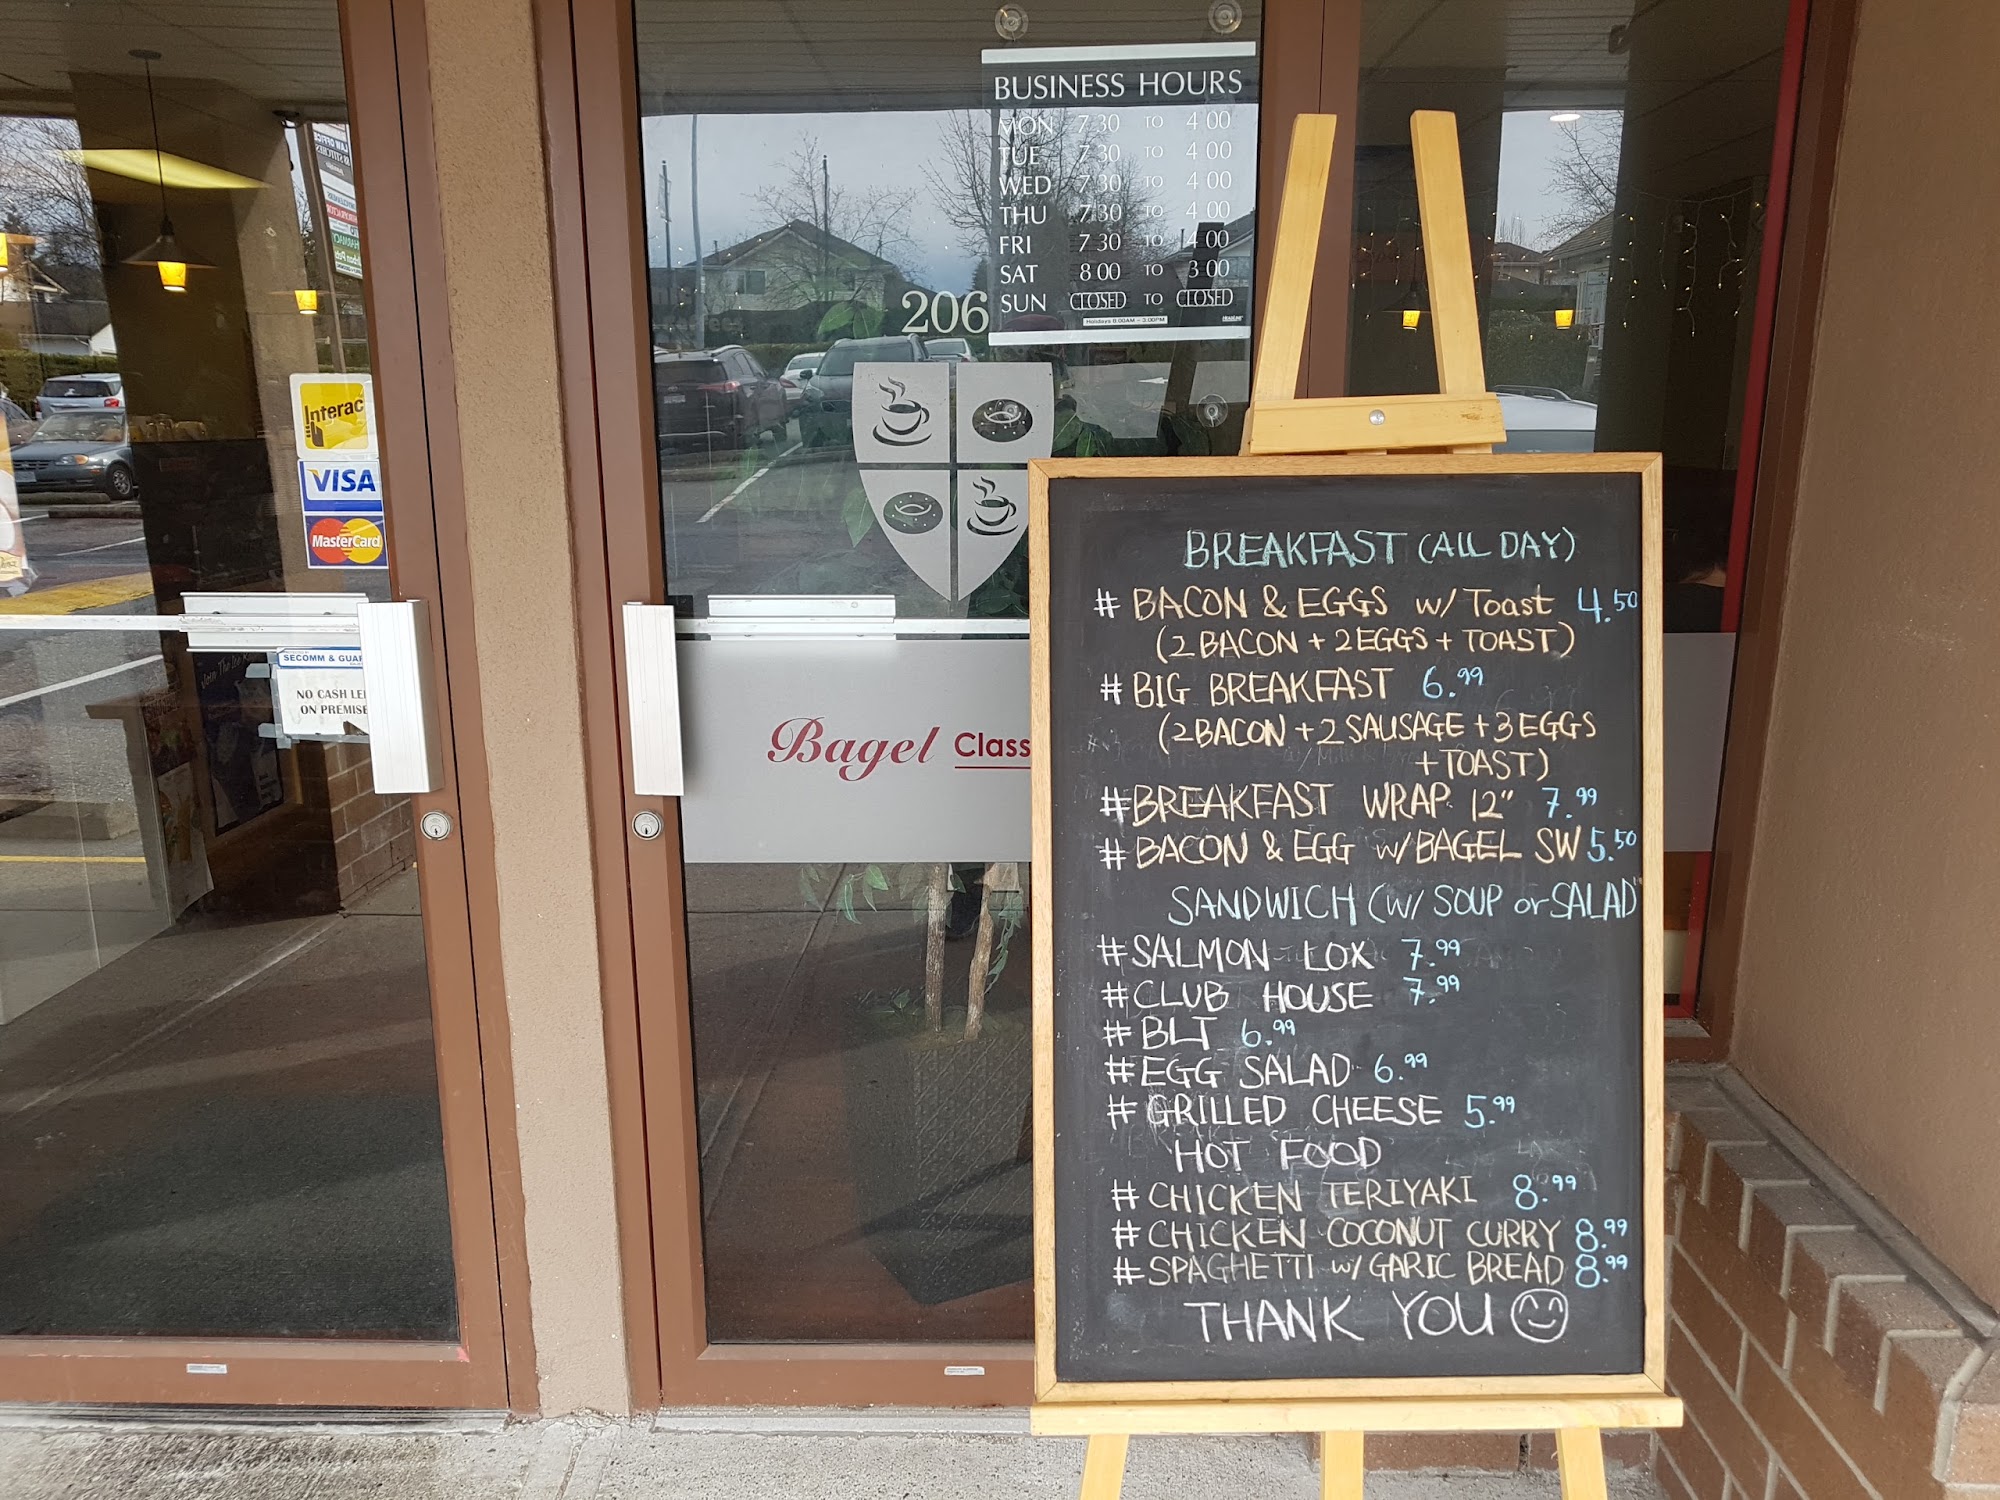 BUSINESS HOURS
MON 7 30 TO 4 00
TUE 7 30 TO 4 00
WED 7 30 TO 4 00
THU 7 30 TO 4 00
FRI 7 30 TO 4 00
SAT 8 00 TO 3 00
SUN CLOSED TO CLOSED
Holidays 8:00AM - 3:00PM
206
Interac
VISA
MasterCard
SECOMM & GUA
NO CASH LE
ON PREMISE
Bagel Class
BREAKFAST (ALL DAY)
# BACON & EGGS w/ Toast 4.50
(2 BACON + 2 EGGS + TOAST)
# BIG BREAKFAST 6.99
(2 BACON + 2 SAUSAGE + 3 EGGS
+ TOAST)
# BREAKFAST WRAP 12" 7.99
# BACON & EGG w/ BAGEL SW 5.50
SANDWICH (W/ SOUP or SALAD
# SALMON LOX 7.99
# CLUB HOUSE 7.99
# BLT 6.99
# EGG SALAD 6.99
# GRILLED CHEESE 5.99
HOT FOOD
# CHICKEN TERIYAKI 8.99
# CHICKEN COCONUT CURRY 8.99
# SPAGHETTI w/ GARIC BREAD 8.99
THANK YOU